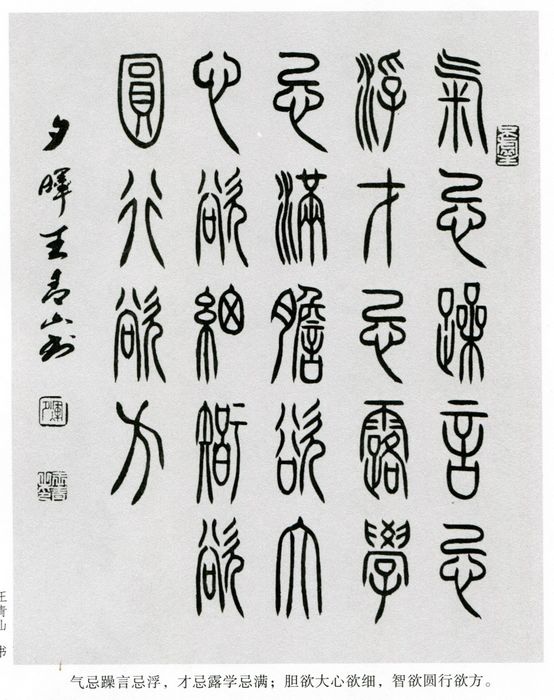 氣忌躁言忌
浮才忌露學
忌滿膽欲大
心欲細智欲
圓行欲方
夕暉王青山
王青山 书
气忌躁言忌浮，才忌露学忌满；胆欲大心欲细，智欲圆行欲方。